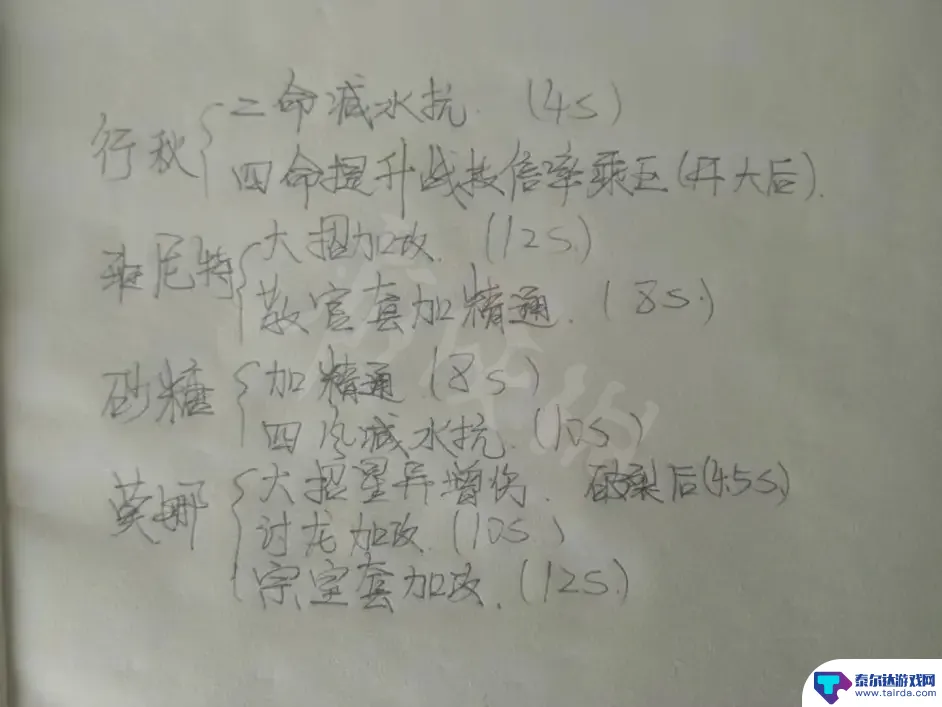 行秋
二命减水抗.（4s）
四命提升战技倍率乘区（开大后）.
班尼特
大招加攻.（12s.）
教官套加精通.（8s.）
砂糖
加精通（8s）
四风减水抗.（10s）
莫娜
大招星异增伤. 破裂后（4.5s.）
讨龙加攻.（10s）
宗室套加攻.（12s.）
泰尔达游戏网
www.tairda.com